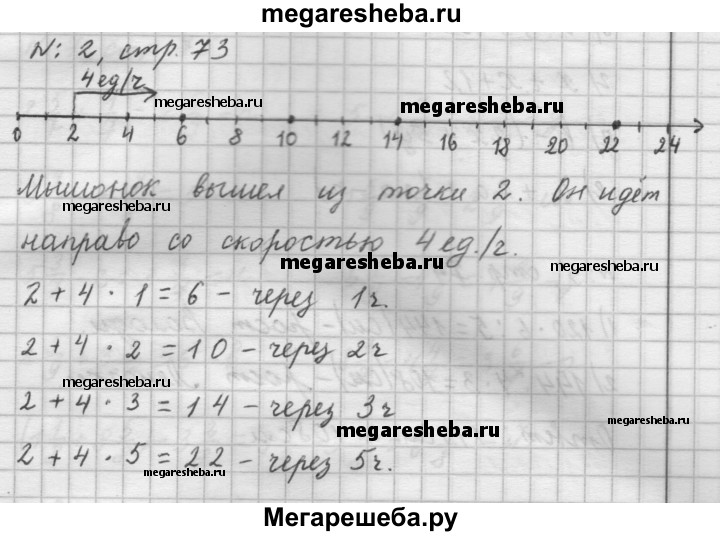 megaresheba.ru
№: 2, стр. 73
4 ед/ч.
megaresheba.ru
megaresheba.ru
0 2 4 6 8 10 12 14 16 18 20 22 24
Мышонок вышел из точки 2. Он идёт
megaresheba.ru
megaresheba.ru
направо со скоростью 4 ед./ч.
megaresheba.ru
megaresheba.ru
2 + 4 · 1 = 6 - через 1ч.
2 + 4 · 2 = 10 - через 2ч
megaresheba.ru
2 + 4 · 3 = 14 - через 3ч
megaresheba.ru
megaresheba.ru
2 + 4 · 5 = 22 - через 5ч.
megaresheba.ru
Мегарешеба.ру